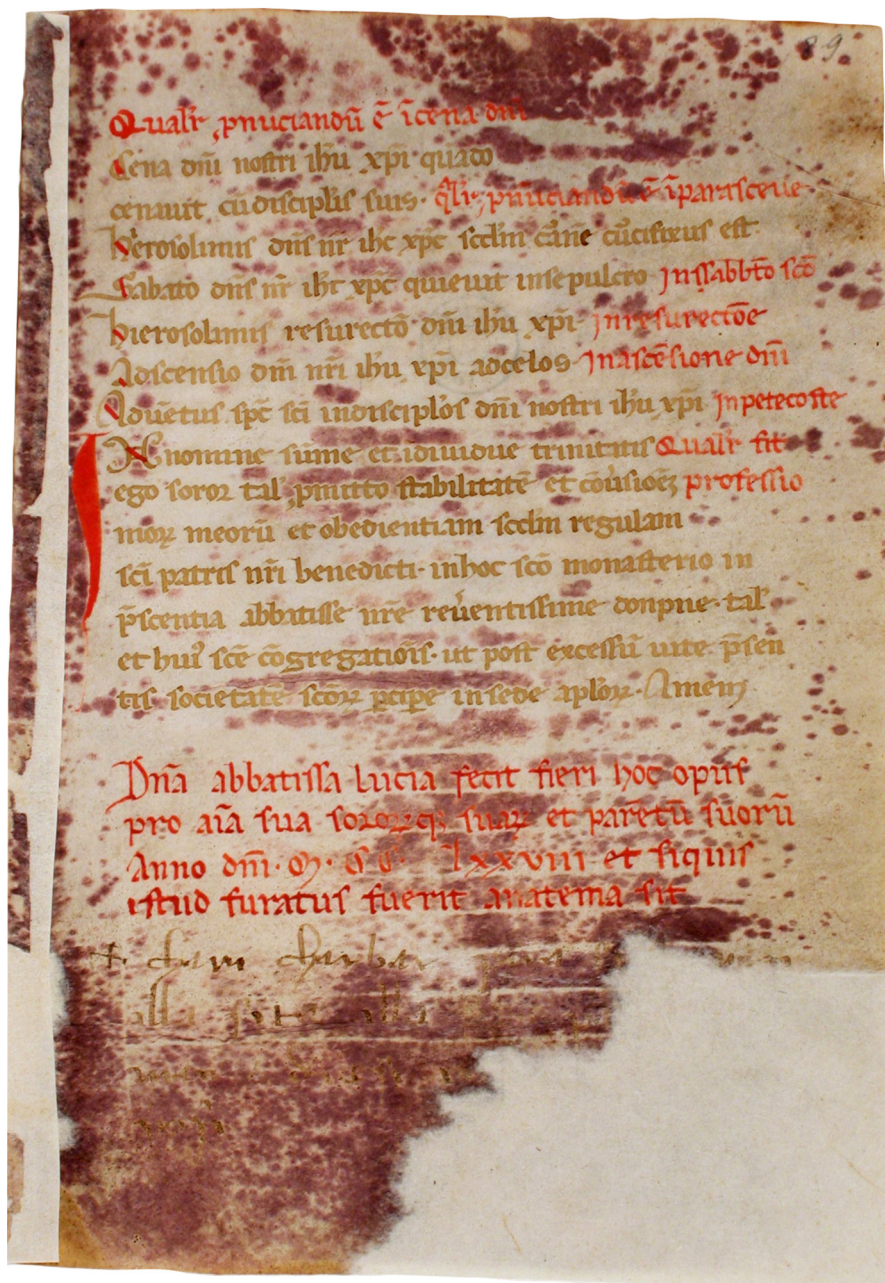 89
Qualr̄ pnūciandū ē ī cena dn̄i
Cena dn̄i nostri ih̄u xp̄i quādo
cenauit cū discipl̄is suis. Qlr̄ pnūciandū ē ī parasceue
hierosolimis dn̄s nr̄ ih̄c xp̄c sccl̄m carnē cūcifixus est
Sabato dn̄s nr̄ ih̄c xp̄c quieuit in sepulcro in ssabbt̄o scō
hierosolimis resurectō dn̄i ih̄u xp̄i in resurectōe
Adscensio dn̄i nr̄i ih̄u xp̄i ad celos in ascēsione dn̄i
Aduētus sp̄c scī in discipl̄os dn̄i nostri ih̄u xp̄i in petecoste
IN nomine sūme et īdiuidue trinitatis Qualr̄ fit
ego soror tal̄ pmitto stabilitatē et cōuſioēꝫ professio
moꝝ meorū et obedientiam sccl̄m regulam
scī patris nr̄i benedicti. in hoc scō monasterio in
p̄scentia abbatisse nr̄e reuentissime donpne. tal̄
et hui' scē cōgregatiōis. ut post excessū uite p̄sen
tis societatē scōꝝ pcipe in sede apl̄oꝝ. Amen
Dn̄a abbatissa lucia fecit fieri hoc opus
pro aīa sua sororꝝqꝫ suaꝝ et parētū suorū
Anno dn̄i. M. CC. lxxviii et siquis
istud furatus fuerit anatema sit